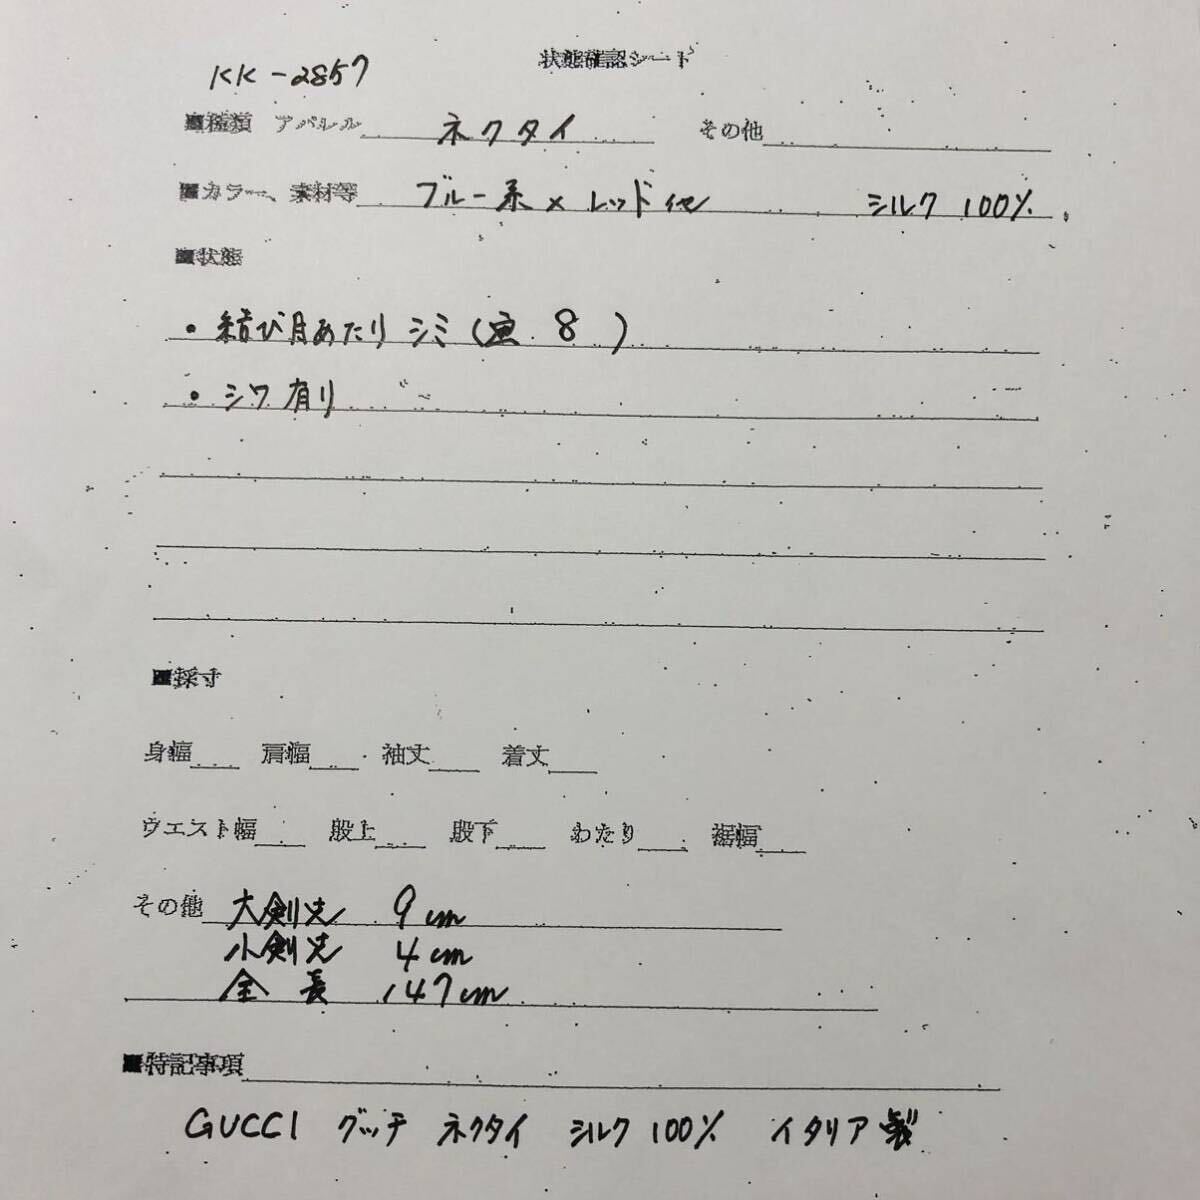 状態確認シート
KK-2857
■種類 アパレル ネクタイ その他
■カラー、素材等 ブルー系×レッド他 シルク 100%
■状態
・結び目あたりシミ(画 8 )
・シワ有り
■採寸
身幅 肩幅 袖丈 着丈
ウエスト幅 股上 股下 わたり 裾幅
その他 大剣先 9cm
小剣先 4cm
全長 147cm
■特記事項
GUCCI グッチ ネクタイ シルク 100% イタリア製